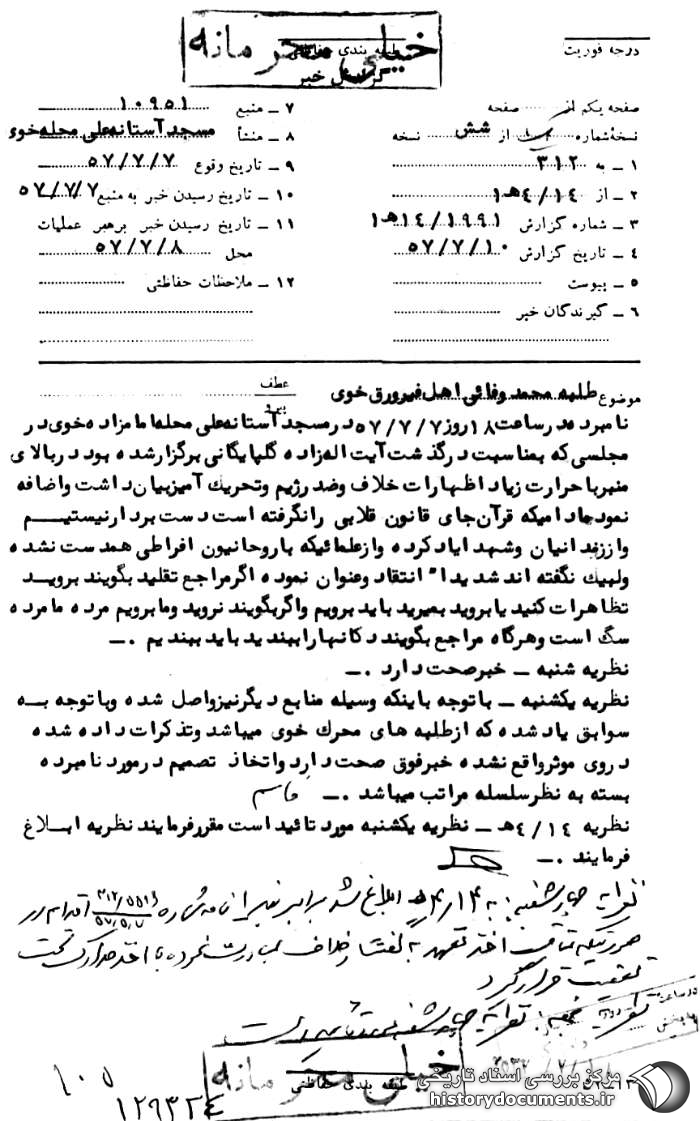 خیلی محرمانه
درجه فوریت
طبقه بندی حفاظتی
گزارش خبر
صفحه یکم از صفحه
نسخهٔ شماره از شش نسخه
۱ ـ به ۳۱۲
۲ ـ از ۴/۱۴هـ۱
۳ ـ شماره گزارش ۱۴/۱۹۹۱هـ۱
۴ ـ تاریخ گزارش ۵۷/۷/۱۰
۵ ـ پیوست
۶ ـ گیرندگان خبر
۷ ـ منبع ۱۰۹۵۱
۸ ـ منشأ مسجد آستانه علی محله خوی
۹ ـ تاریخ وقوع ۵۷/۷/۷
۱۰ ـ تاریخ رسیدن خبر به منبع ۵۷/۷/۷
۱۱ ـ تاریخ رسیدن خبر برهبر عملیات
محل ۵۷/۷/۸
۱۲ ـ ملاحظات حفاظتی
موضوع طلبه محمد وفائی اهل فیرورق خوی
عطف
نامبرده در ساعت ۱۸ روز ۵۷/۷/۷ در مسجد آستانه علی محله امامزاده خوی در
مجلسی که بمناسبت درگذشت آیت اله زاده گلپایگانی برگزار شده بود در بالای
منبر با حرارت زیاد اظهارات خلاف و ضد رژیم و تحریک آمیز بیان داشت و اضافه
نمود مادامیکه قرآن جای قانون قلابی را نگرفته است دست بردار نیستیم
و از زندانیان و شهدا یاد کرده و از علمائیکه با روحانیون افراطی همدست نشده
ولبیک نگفته اند شدیداً انتقاد و عنوان نموده اگر مراجع تقلید بگویند بروید
تظاهرات کنید یا بروید بمیرید باید برویم و اگر بگویند نروید و ما برویم مرده ما مرده
سگ است و هرگاه مراجع بگویند دکانها را ببندید باید ببندیم .ــ
نظریه شنبه ــ خبر صحت دارد .ــ
نظریه یکشنبه ــ با توجه باینکه وسیله منابع دیگر نیز واصل شده و با توجه به
سوابق یاد شده که از طلبه های محرک خوی میباشد و تذکرات داده شده
در وی موثر واقع نشده خبر فوق صحت دارد و اتخاذ تصمیم در مورد نامبرده
بسته به نظر سلسله مراتب میباشد .ــ قاسم
نظریه ۴/۱۴هـ ــ نظریه یکشنبه مورد تائید است مقرر فرمایند نظریه ابلاغ
فرمایند .ــ
نظریه چهارشنبه: به ۴/۱۴هـ ابلاغ شد برابر نامه شماره
تحت
تعقیب قرار گیرد
نظریه جمعه: نظریه چهارشنبه مورد تائید است
در ساعت
خیلی محرمانه
طبقه بندی حفاظتی
۱۰۵
۱۲۶۳۲۴
مرکز بررسی اسناد تاریخی
historydocuments.ir